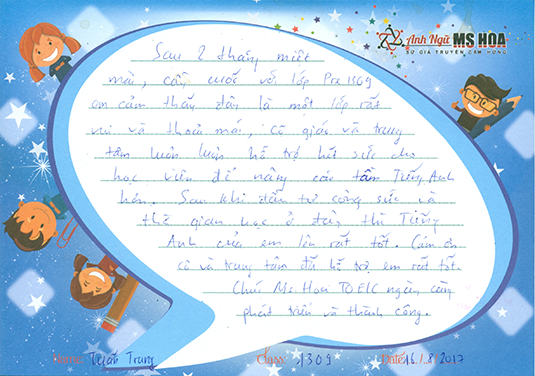 Anh Ngữ MS HOA
SỨ GIẢ TRUYỀN CẢM HỨNG
Sau 2 tháng miệt
mài, cần cuốc với lớp Pre 1309
em cảm thấy đây là một lớp rất
vui và thoải mái, cô giáo và trung
tâm luôn luôn hỗ trợ hết sức cho
học viên để nâng cao tầm Tiếng Anh
hơn. Sau khi đầu tư công sức và
thời gian học ở đây thì Tiếng
Anh của em lên rất tốt. Cám ơn
cô và trung tâm đã hỗ trợ em rất tốt.
Chúc Ms. Hoa TOEIC ngày càng
phát triển và thành công.
Name: Trung Class: 1309 Date: 16/8/2017